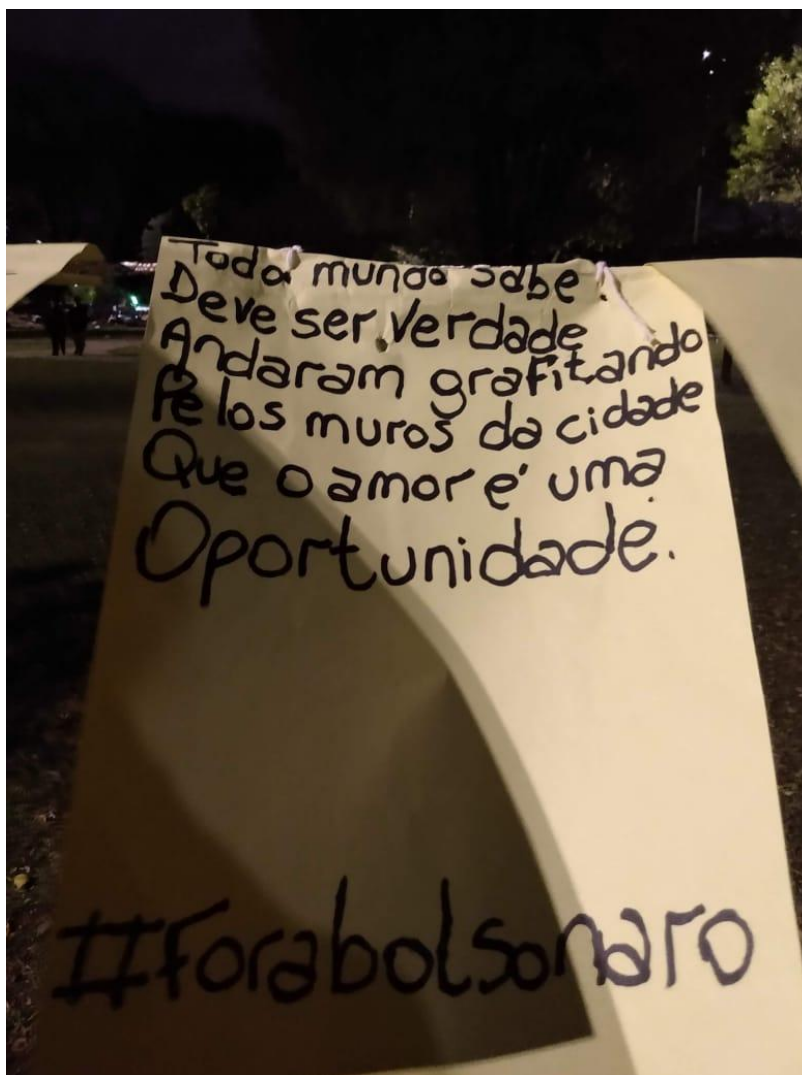 Todo mundo sabe.
Deve ser verdade
Andaram grafitando
Pelos muros da cidade
Que o amor é uma
Oportunidade.
#Forabolsonaro